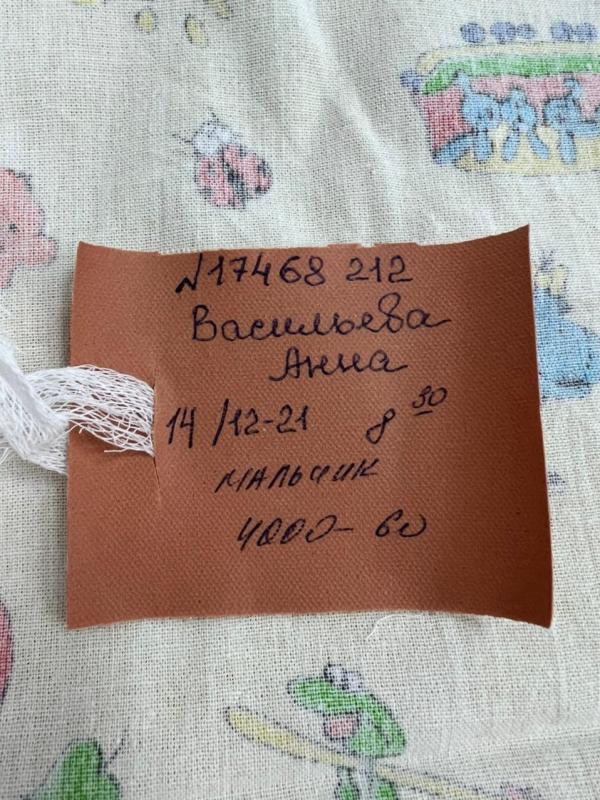 №17468 212
Васильева
Анна
14/12-21 8 30
мальчик
4000- 60